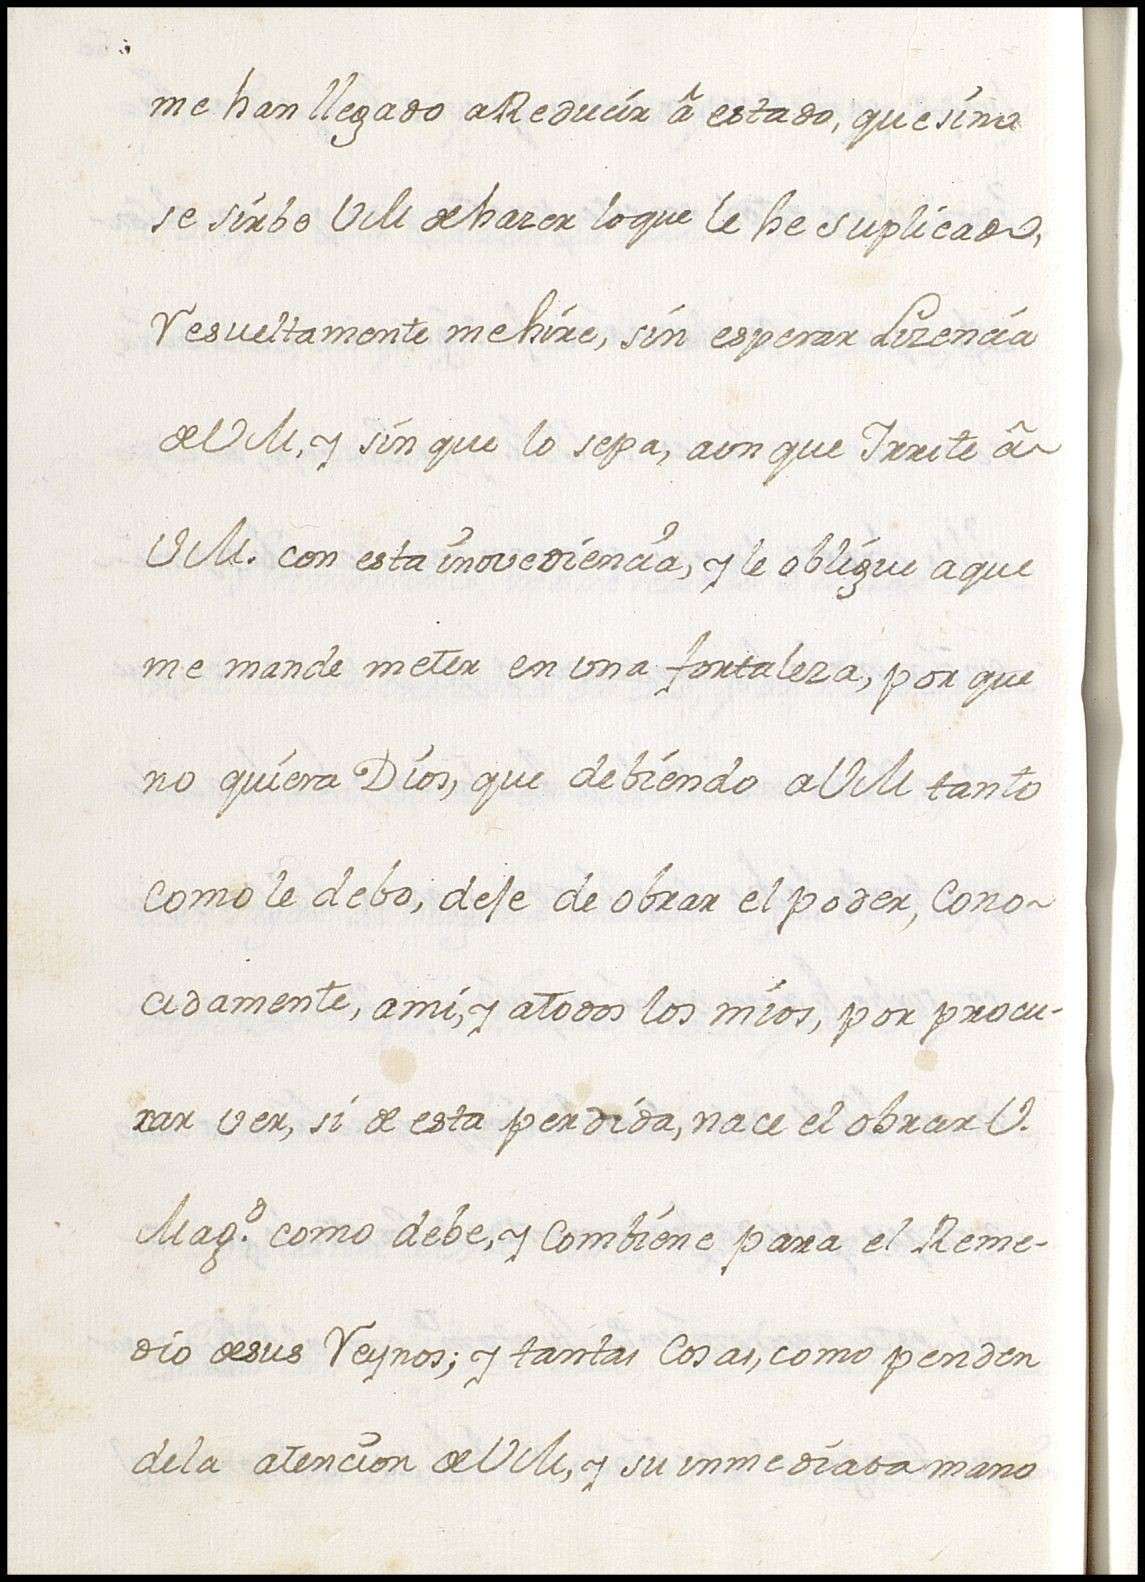 me han llegado a Reducir â estado, que sino
se sirbe VM de hazer loque le he suplicado,
Resueltamente mehire, sin esperar Lizencia
de VM, y sin que lo sepa, aun que Irrite â
VM. con esta inovediencia, y le obligue aque
me mande meter en una fortaleza, por que
no quiera Dios, que debiendo a VM tanto
como le debo, deje de obrar el poder, Cono-
cidamente, ami, y atodos los mios, por procu-
rar ver, si de esta perdida, nace el obrar V.
Magd. como debe, y Combiene para el Reme-
dio desus Reynos; y tantas Cosas, como penden
dela atencion de VM, y su inmediata mano